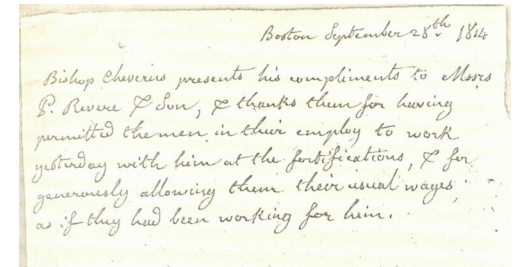 Boston September 28th 1814
Bishop Cheverus presents his compliments to Messrs
P. Revere & Son, & thanks them for having
permitted the men in their employ to work
yesterday with him at the fortifications, & for
generously allowing them their usual wages,
as if they had been working for him.